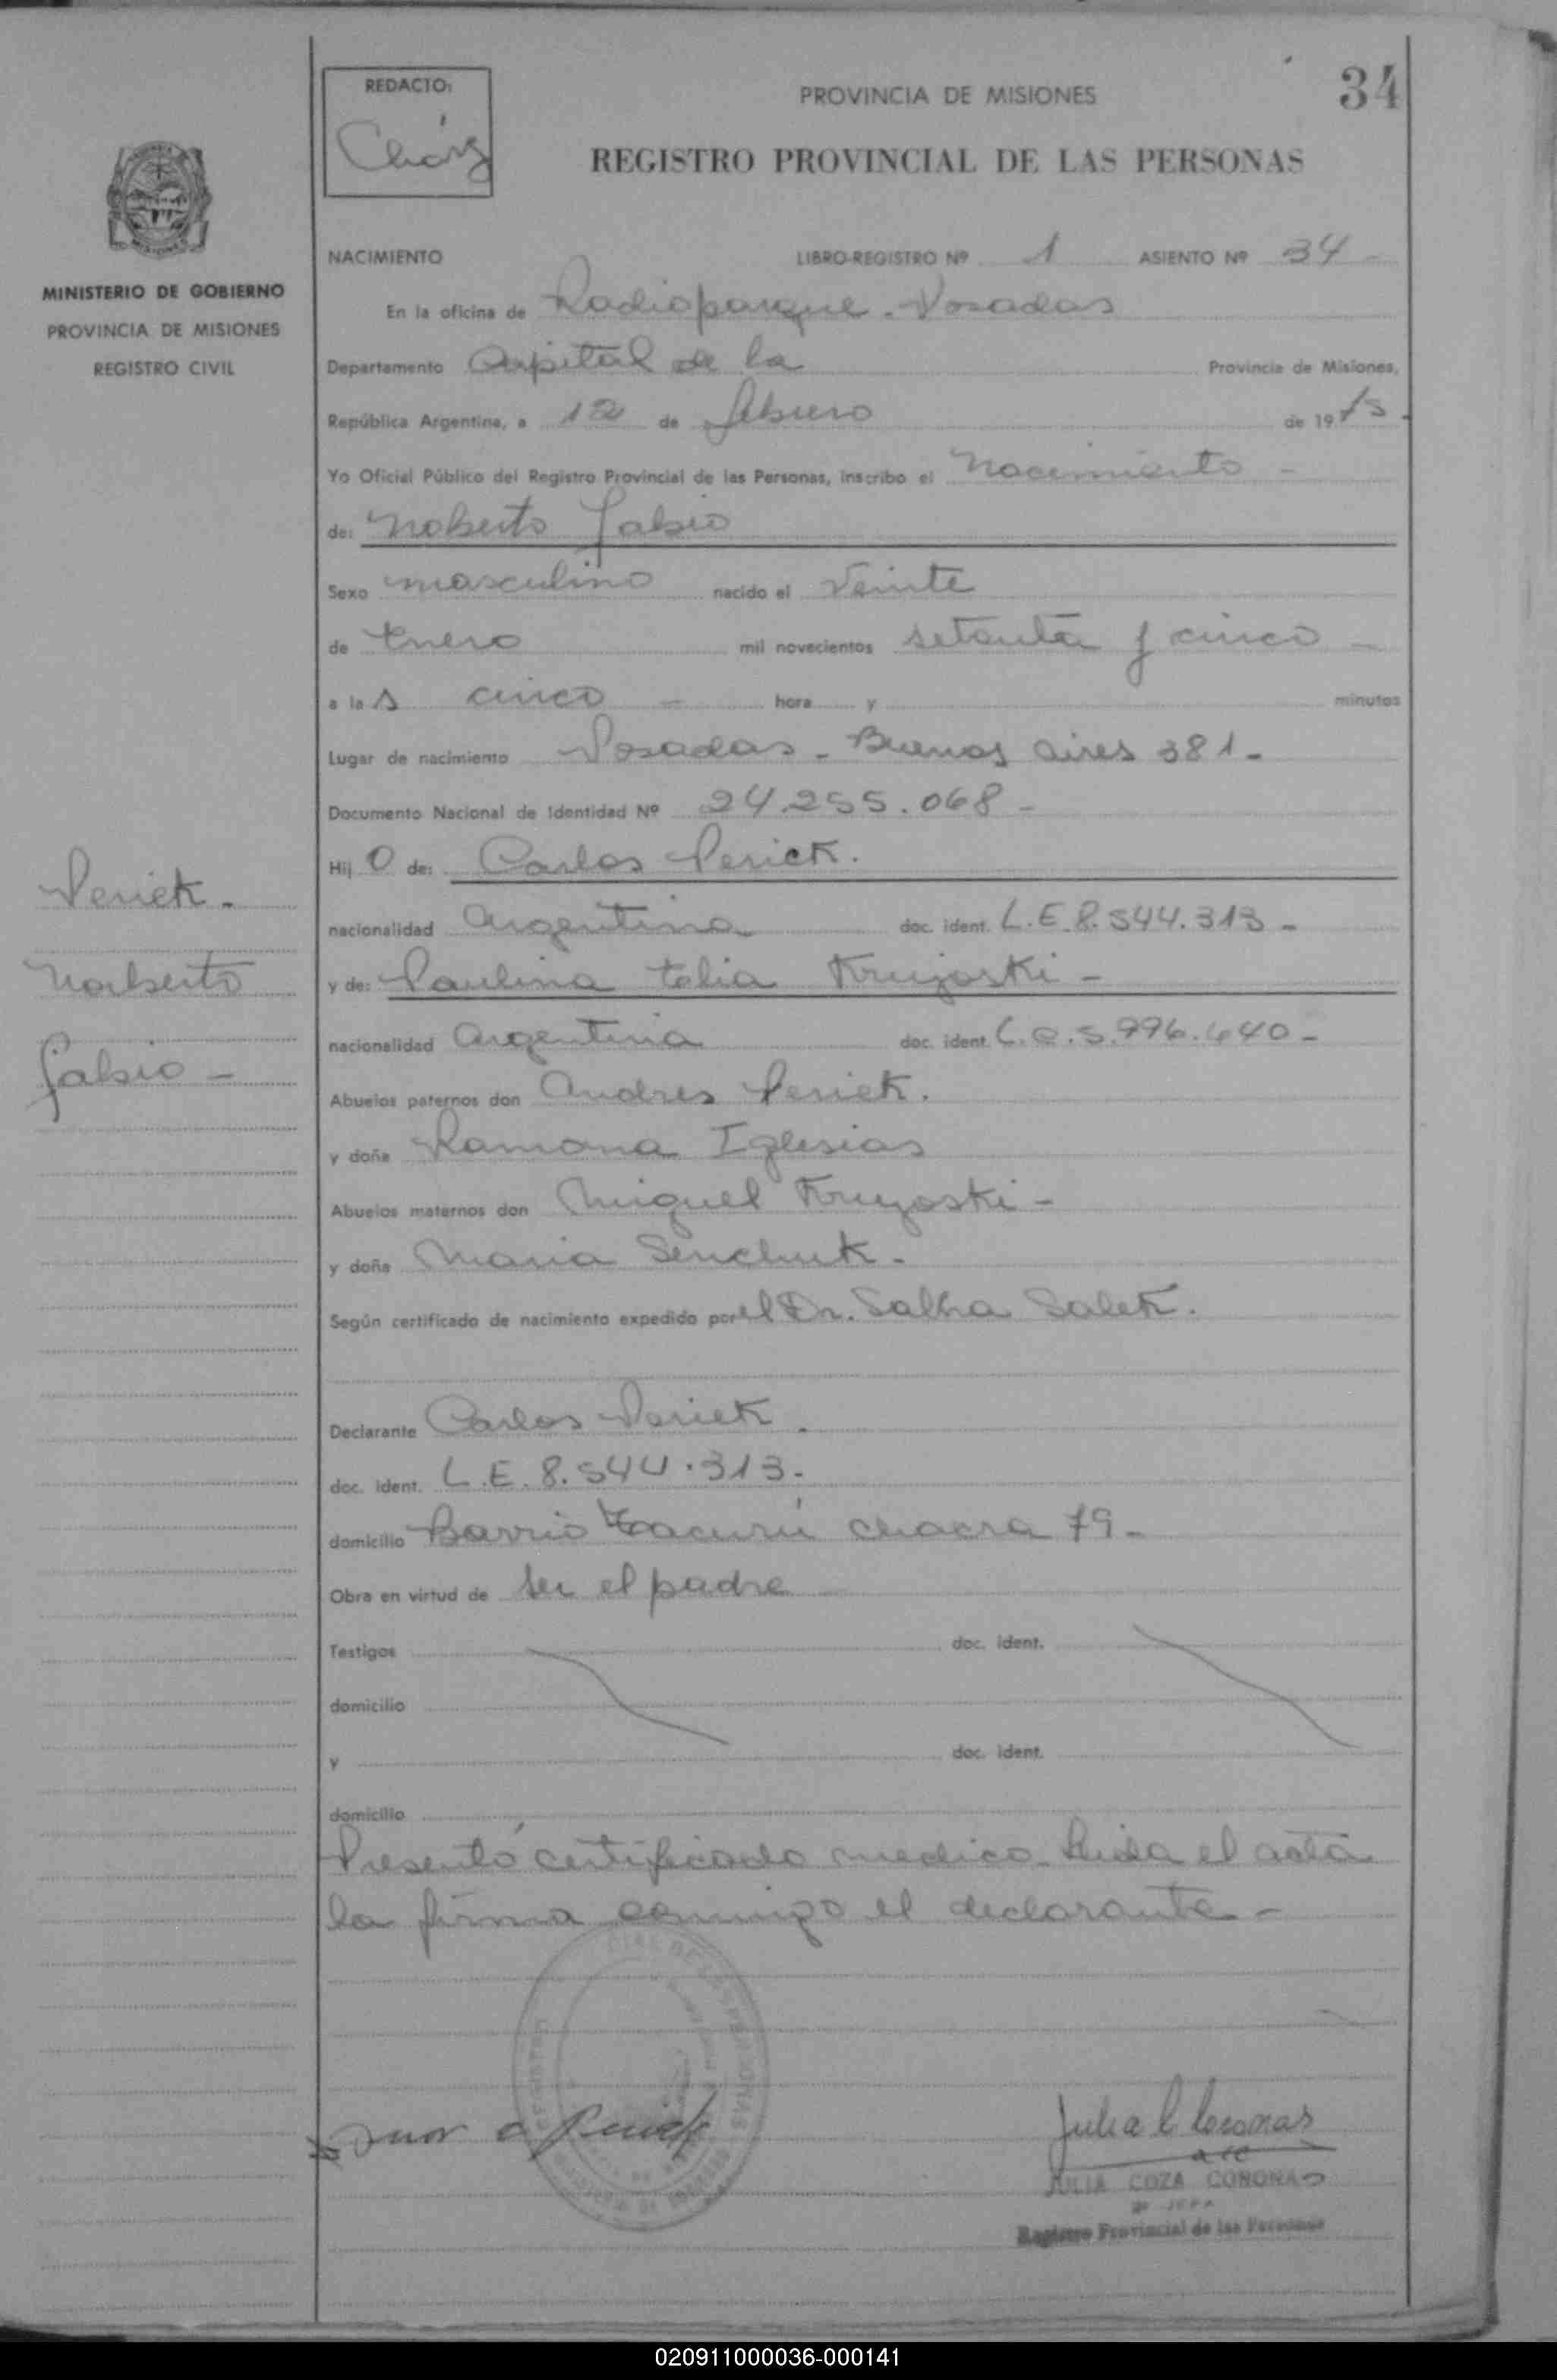 34
REDACTO:
PROVINCIA DE MISIONES
REGISTRO PROVINCIAL DE LAS PERSONAS
MINISTERIO DE GOBIERNO
PROVINCIA DE MISIONES
REGISTRO CIVIL
NACIMIENTO LIBRO-REGISTRO Nº 1 ASIENTO Nº 34 -
En la oficina de Radioparque - Posadas
Departamento Capital de la Provincia de Misiones,
República Argentina, a 12 de febrero de 1975.
Yo Oficial Público del Registro Provincial de las Personas, inscribo el Nacimiento -
de: Norberto Fabio
Sexo masculino nacido el Veinte
de Enero mil novecientos setenta y cinco -
a las cinco - hora y minutos
Lugar de nacimiento Posadas - Buenos Aires 381 -
Documento Nacional de Identidad Nº 24.255.068 -
Hijo de: Carlos Periek.
nacionalidad Argentina doc. ident. L.E. 8.544.313 -
y de: Paulina Krujoski -
nacionalidad Argentina doc. ident. L.C. 5.996.440 -
Abuelos paternos don Andres Periek.
y doña Ramona Iglesias
Abuelos maternos don Miguel Krujoski -
y doña Maria Senchuk -
Según certificado de nacimiento expedido por el Dr. Salha Salek.
Declarante Carlos Periek.
doc. ident. L.E. 8.544.313.
domicilio Barrio Tacurú chacra 79 -
Obra en virtud de ser el padre
Testigos doc. ident.
domicilio
y doc. ident.
domicilio
Presentó certificado medico. Leida el acta
la firma conmigo el declarante -
Periek -
Norberto
Fabio -
Julia C Coronas
JULIA COZA CORONAS
Registro Provincial de las Personas
020911000036-000141